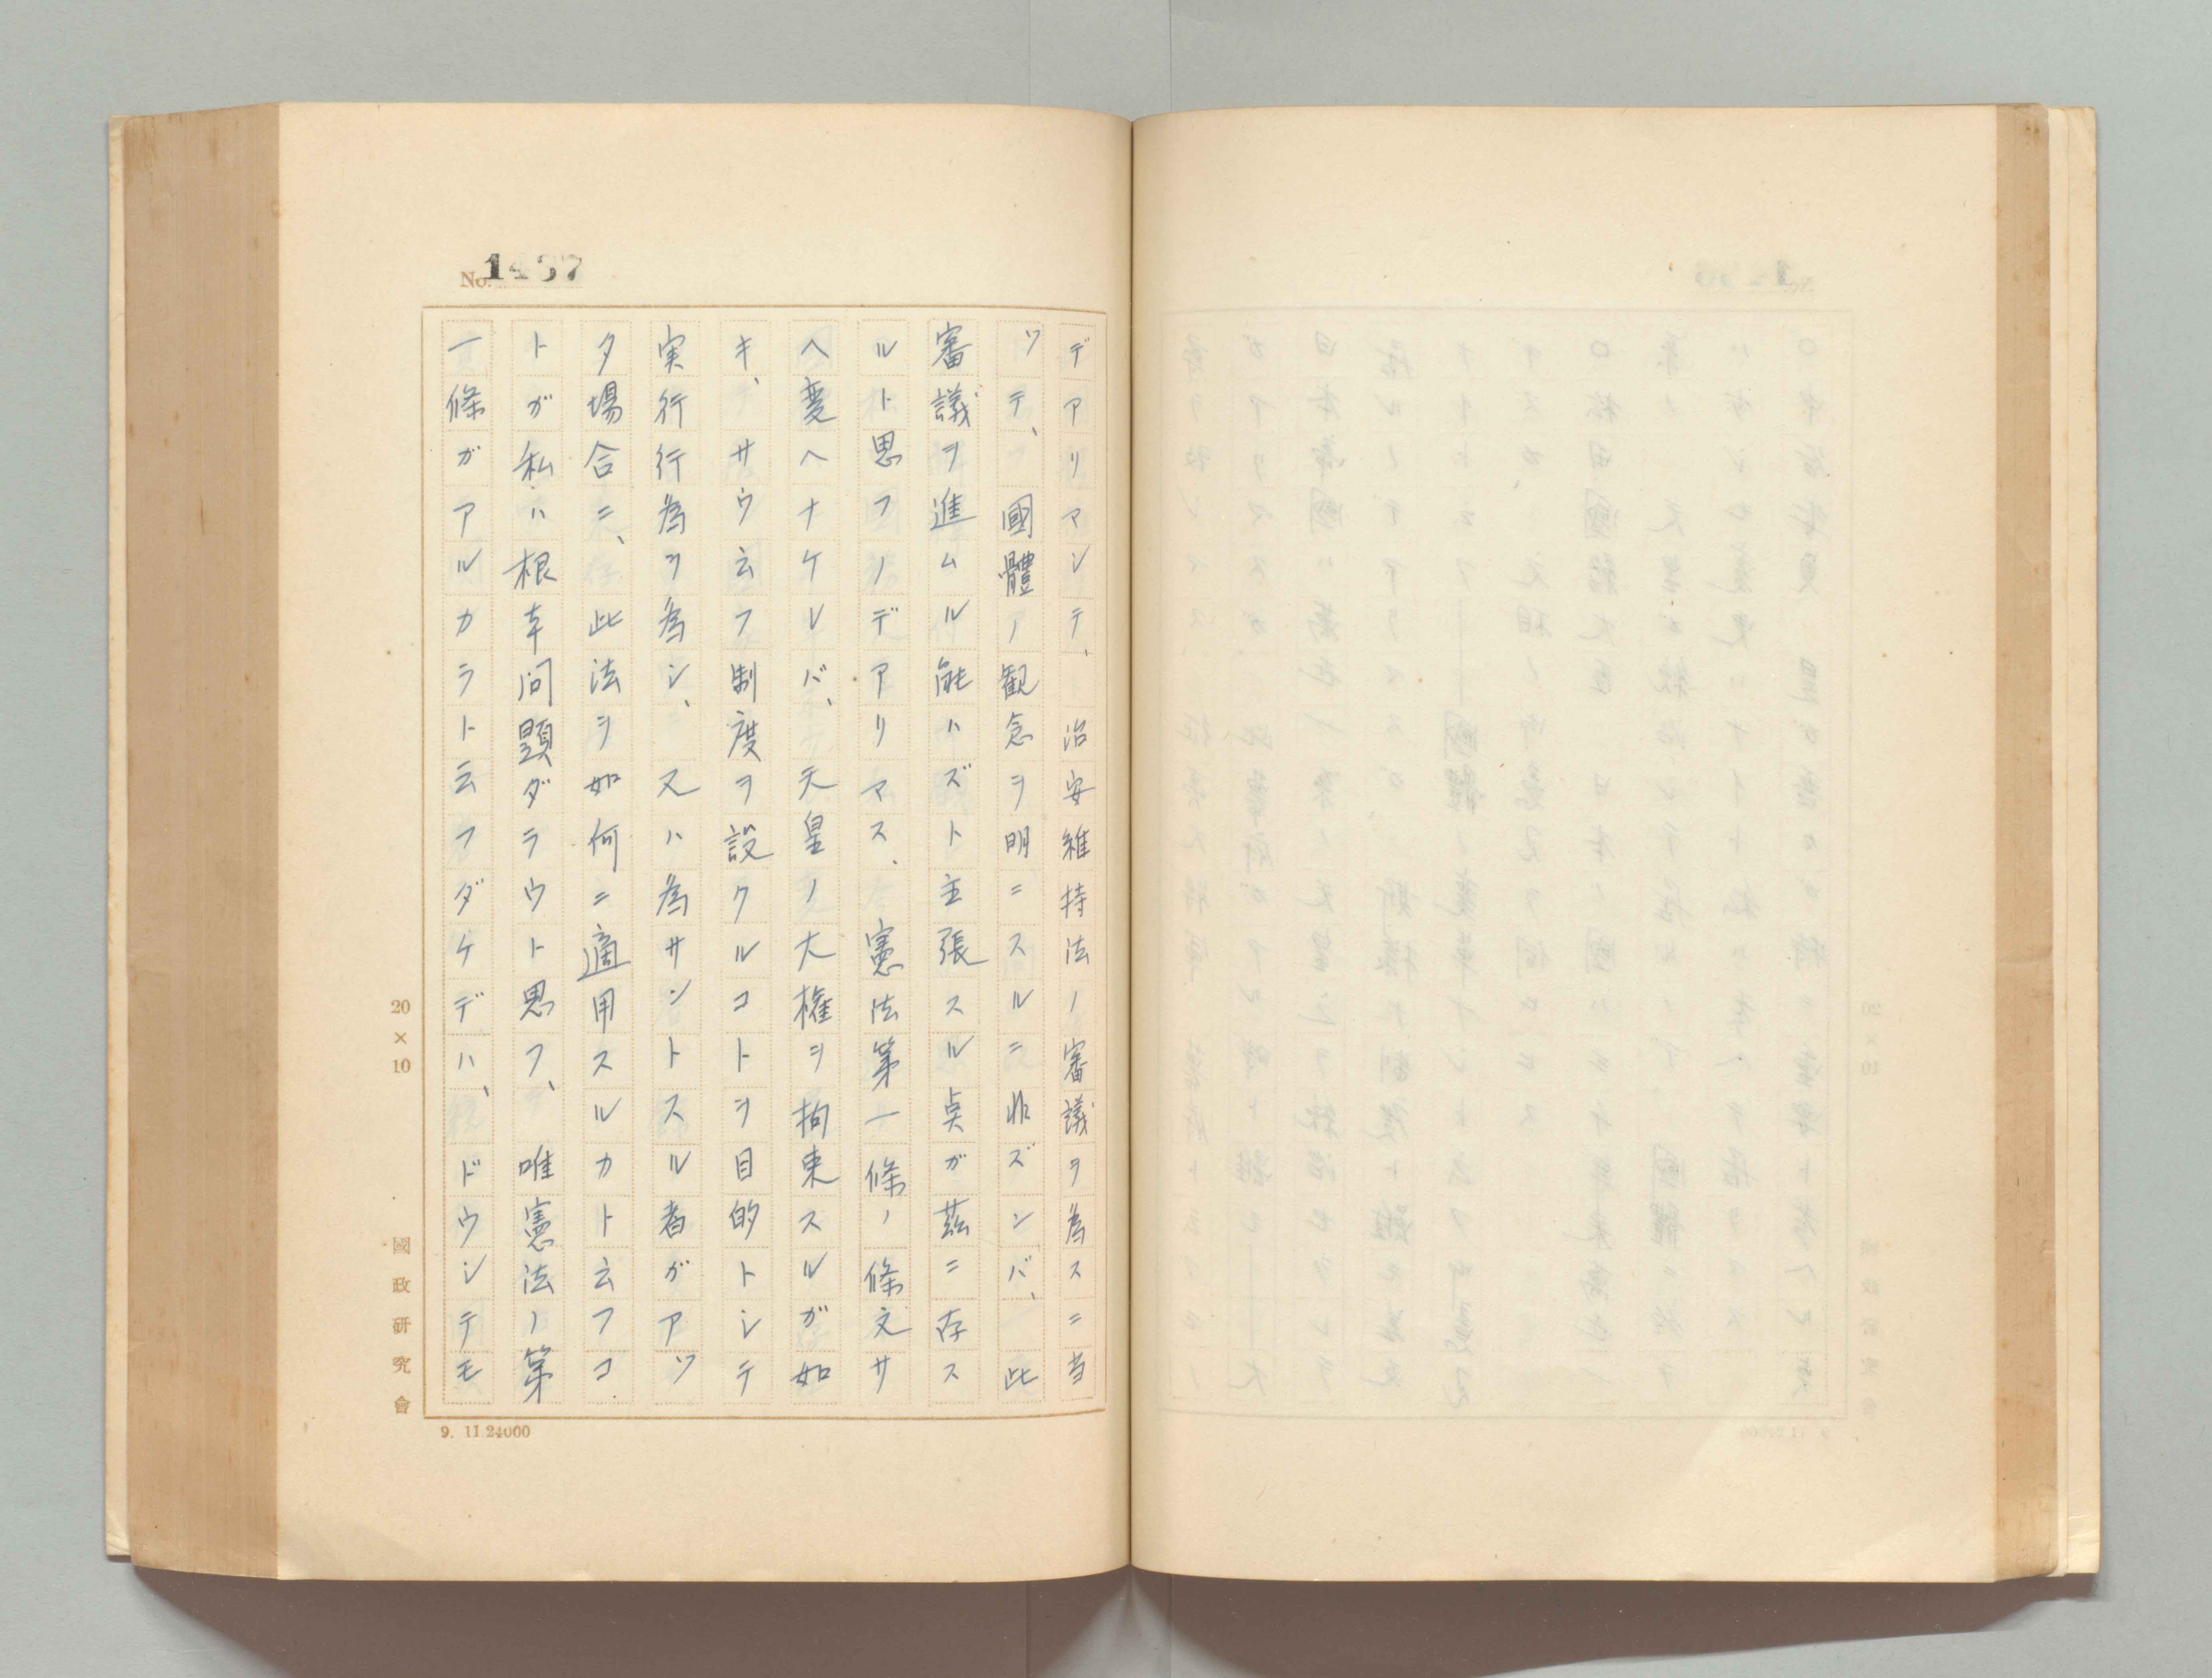 No. 1437
デアリマシテ、治安維持法ノ審議ヲ為スニ当
ツテ、國體ノ観念ヲ明ニスルニ非ズンバ、此
審議ヲ進ムル能ハズト主張スル点ガ茲ニ存ス
ルト思フノデアリマス、憲法第一條ノ條文サ
ヘ変ヘナケレバ、天皇ノ大権ヲ拘束スルガ如
キ、サウ云フ制度ヲ設クルコトヲ目的トシテ
実行行為ヲ為シ、又ハ為サントスル者ガアツ
タ場合ニ、此法ヲ如何ニ適用スルカト云フコ
トガ私ハ根本問題ダラウト思フ、唯憲法ノ第
一條ガアルカラト云フダケデハ、ドウシテモ
20×10
國政研究會
9. 11.24000